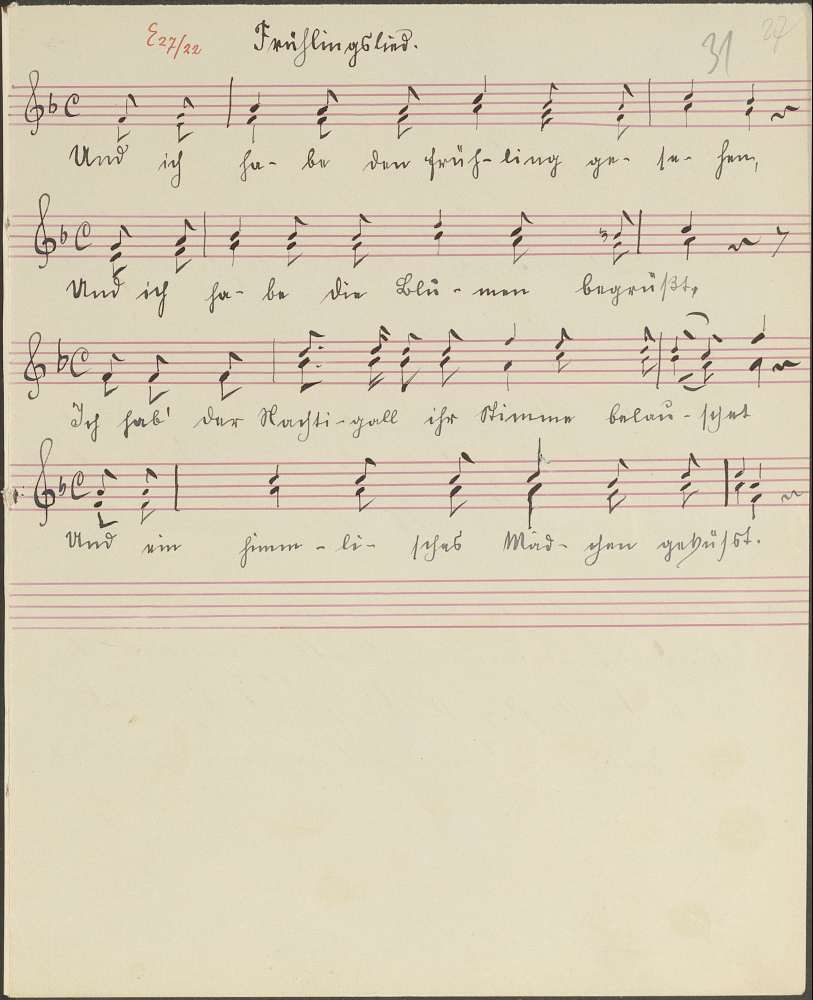 E27/22 Frühlingslied. 31 27
Und ich ha- be den Früh-ling ge- se- hen,
Und ich ha- be die Blu- men begrüßt,
Ich hab' der Nachti-gall ihr Stimme belau-schet
Und ein himm-li- sches Mäd- chen geküsst.